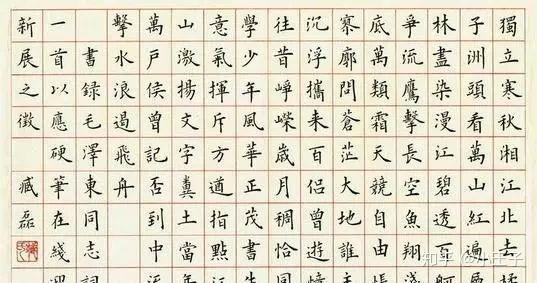 獨立寒秋湘江北去橘
子洲頭看萬山紅遍層
林盡染漫江碧透百舸
爭流鷹擊長空魚翔淺
底萬類霜天競自由悵
寥廓問蒼茫大地誰主
沉浮攜来百侣曾遊憶
往昔崢嶸歲月稠恰同
學少年風華正茂書生
意氣揮斥方遒指點江
山激揚文字糞土當年
萬戶侯曾記否到中流
擊水浪遏飛舟
書錄毛澤東同志詞
一首以應硬筆在綫迎
新展之徵 臧磊
知乎